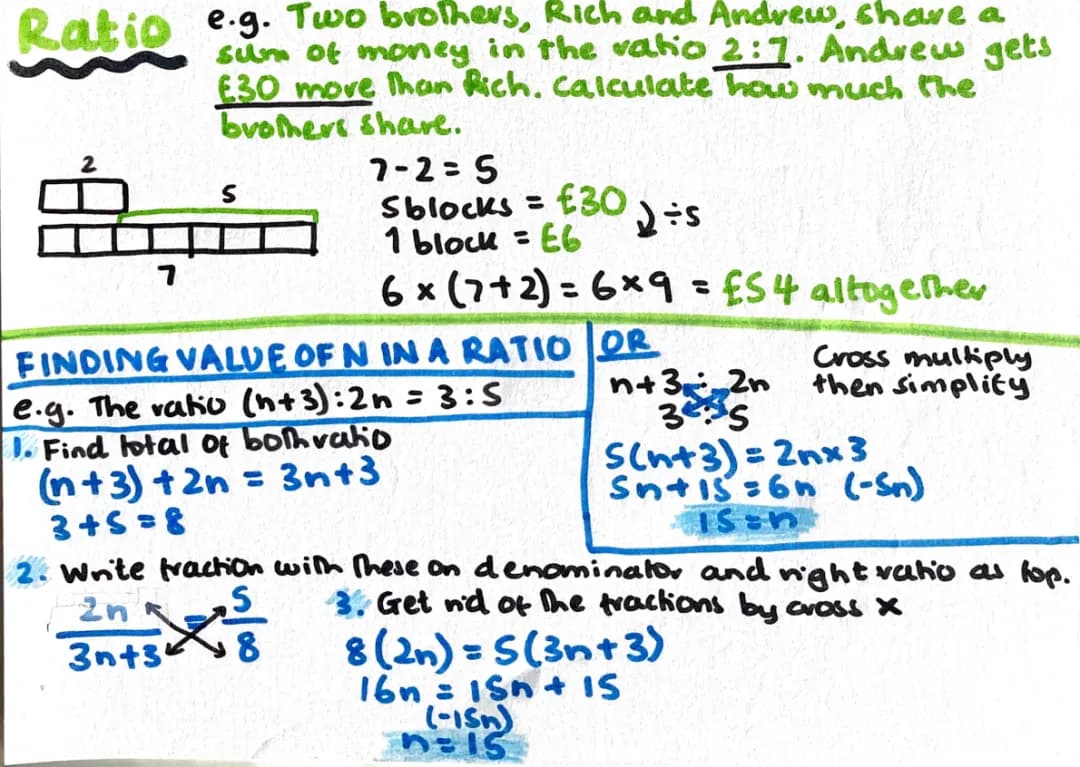 Ratio
e.g. Two brothers, Rich and Andrew, share a
sum of money in the ratio 2:7. Andrew gets
£30 more than Rich. Calculate how much the
brothers share.
2
5
7
7-2=5
5 blocks = £30
÷5
1 block = £6
6 × (7+2) = 6×9 = £54 altogether
FINDING VALUE OF N IN A RATIO
e.g. The ratio (n+3):2n = 3:5
1. Find total of both ratio
(n+3)+2n = 3n+3
3+5=8
OR
n+3 : 2n
3 : 5
Cross multiply
then simplify
5(n+3) = 2n×3
5n+15=6n (-5n)
15=n
2. Write fraction with these on denominator and right ratio as top.
2n = 5
3n+3 8
3. Get rid of the fractions by cross ×
8(2n) = 5(3n+3)
16n = 15n + 15
(-15n)
n=15